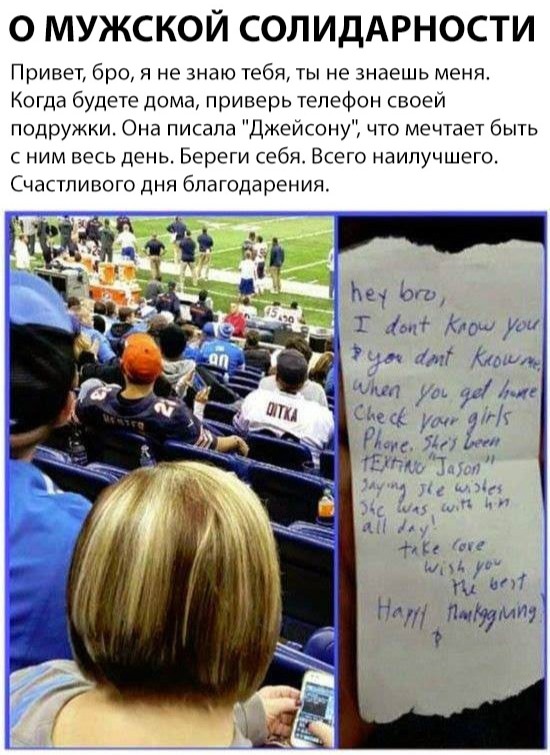 О МУЖСКОЙ СОЛИДАРНОСТИ
Привет, бро, я не знаю тебя, ты не знаешь меня.
Когда будете дома, приверь телефон своей
подружки. Она писала "Джейсону", что мечтает быть
с ним весь день. Береги себя. Всего наилучшего.
Счастливого дня благодарения.
90
HESTER
23
DITKA
hey bro,
I dont know you
& you dont know me,
when you get home
check your girls
Phone. She's been
TEXTING "Jason"
saying she wishes
she was with him
all day!
take care
wish you
the best
Happy Thanksgiving